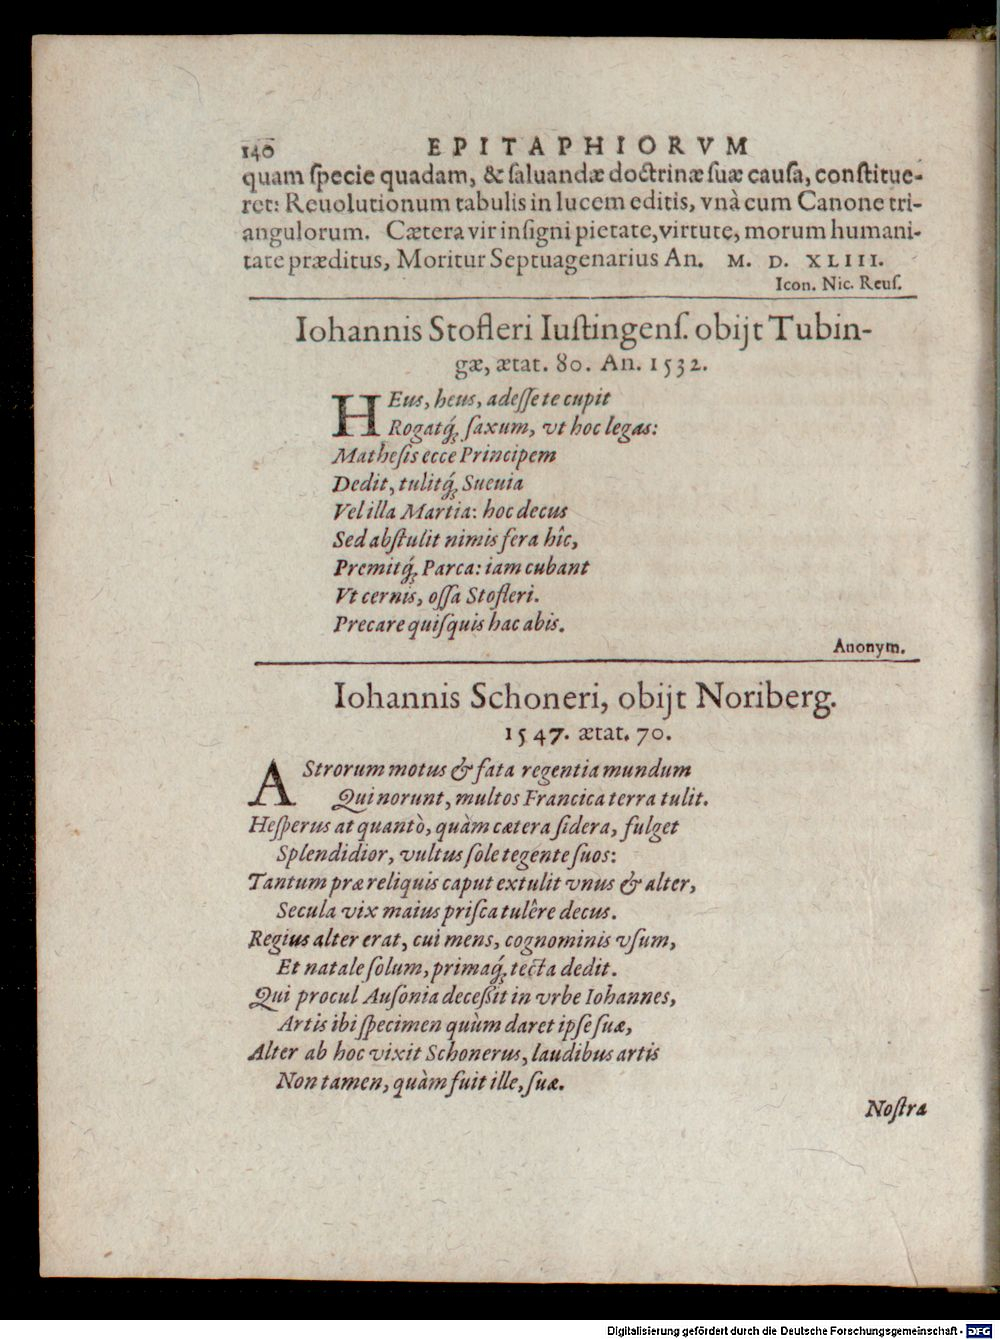 140 EPITAPHIORVM
quam ſpecie quadam, & ſaluandæ doctrinæ ſuæ cauſa, conſtitue-
ret: Reuolutionum tabulis in lucem editis, vnà cum Canone tri-
angulorum. Cætera vir inſigni pietate, virtute, morum humani-
tate præditus, Moritur Septuagenarius An. M. D. XLIII.
Icon. Nic. Reuſ.
Iohannis Stofleri Iuſtingenſ. obijt Tubin-
gæ, ætat. 80. An. 1532.
HEus, heus, adeſſe te cupit
Rogatq́; ſaxum, vt hoc legas:
Matheſis ecce Principem
Dedit, tulitq́; Sueuia
Vel illa Martia: hoc decus
Sed abſtulit nimis fera hîc,
Premitq́; Parca: iam cubant
Vt cernis, oſſa Stofleri.
Precare quiſquis hac abis.
Anonym.
Iohannis Schoneri, obijt Noriberg.
1547. ætat. 70.
AStrorum motus & fata regentia mundum
Qui norunt, multos Francica terra tulit.
Heſperus at quantò, quàm cætera ſidera, fulget
Splendidior, vultus ſole tegente ſuos:
Tantum præ reliquis caput extulit vnus & alter,
Secula vix maius priſca tulêre decus.
Regius alter erat, cui mens, cognominis vſum,
Et natale ſolum, primaq́; tecta dedit.
Qui procul Auſonia deceſſit in vrbe Iohannes,
Artis ibi ſpecimen quùm daret ipſe ſuæ,
Alter ab hoc vixit Schonerus, laudibus artis
Non tamen, quàm fuit ille, ſuæ.
Noſtra
Digitalisierung gefördert durch die Deutsche Forschungsgemeinschaft - DFG